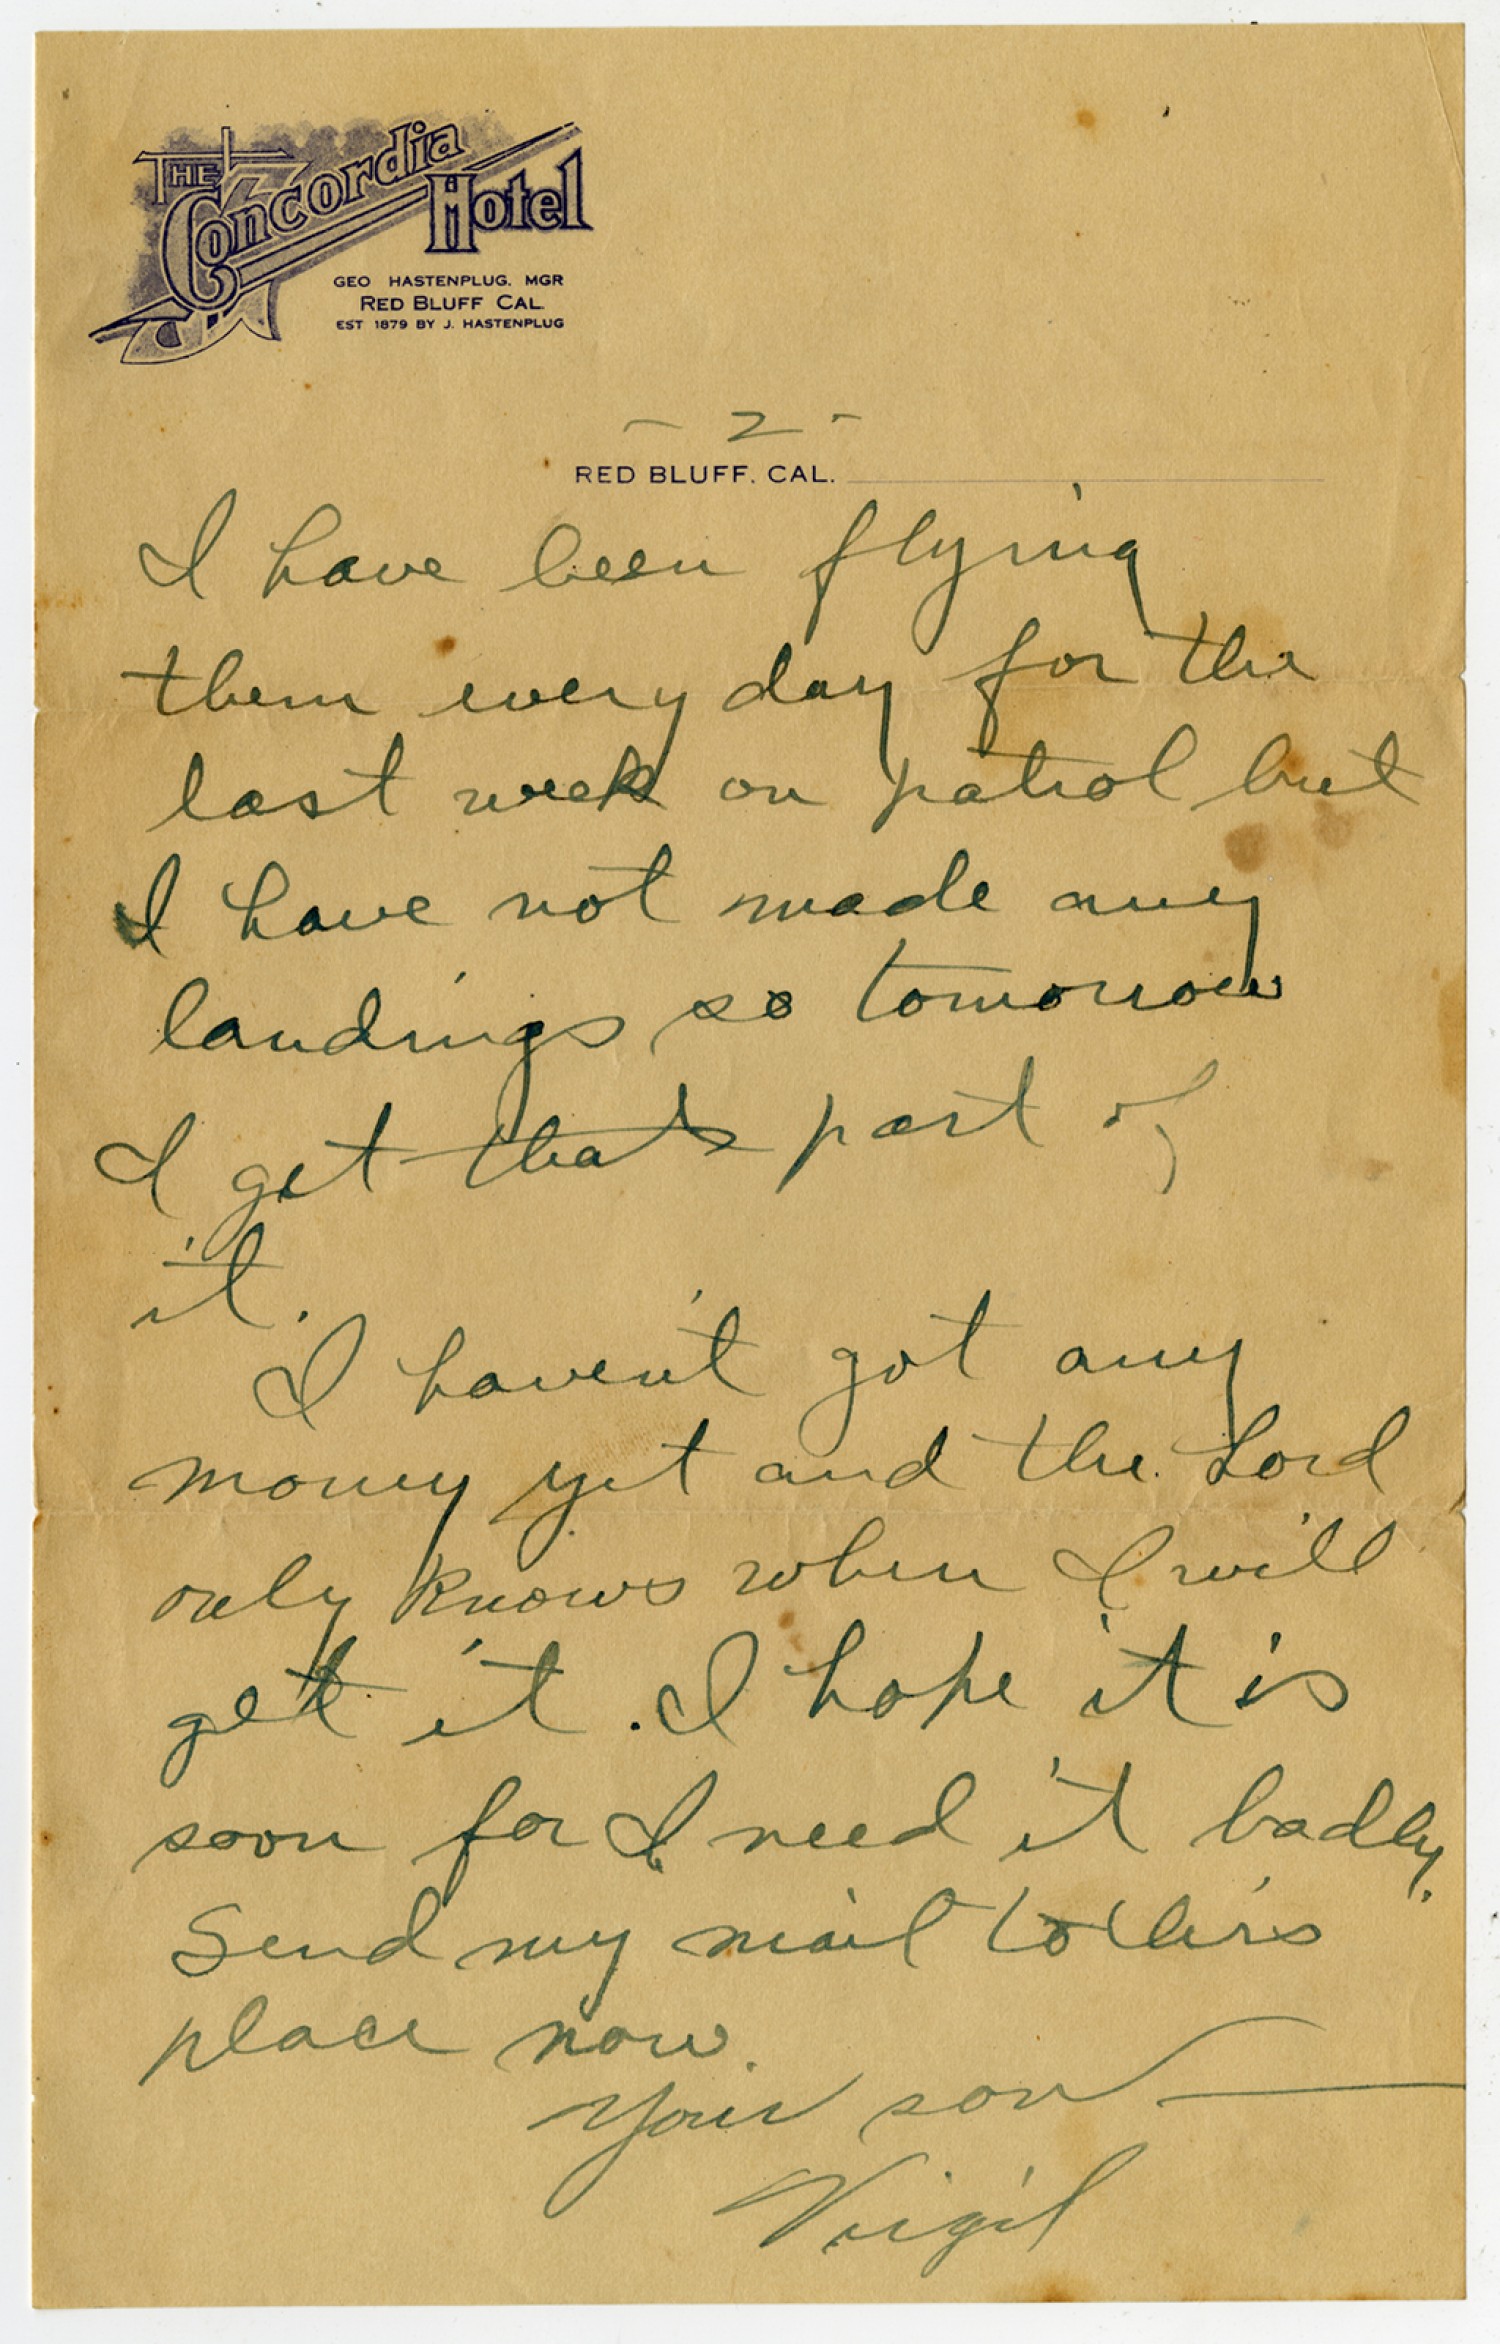 THE Concordia Hotel
GEO HASTENPLUG. MGR
RED BLUFF CAL.
EST 1879 BY J. HASTENPLUG
- 2 -
RED BLUFF. CAL.
I have been flying
them every day for the
last week on patrol but
I have not made any
landings so tomorrow
I get thats part of
it.
I haven't got any
money yet and the Lord
only knows when I will
get it. I hope it is
soon for I need it badly.
Send my mail to this
place now.
Your son
Virgil